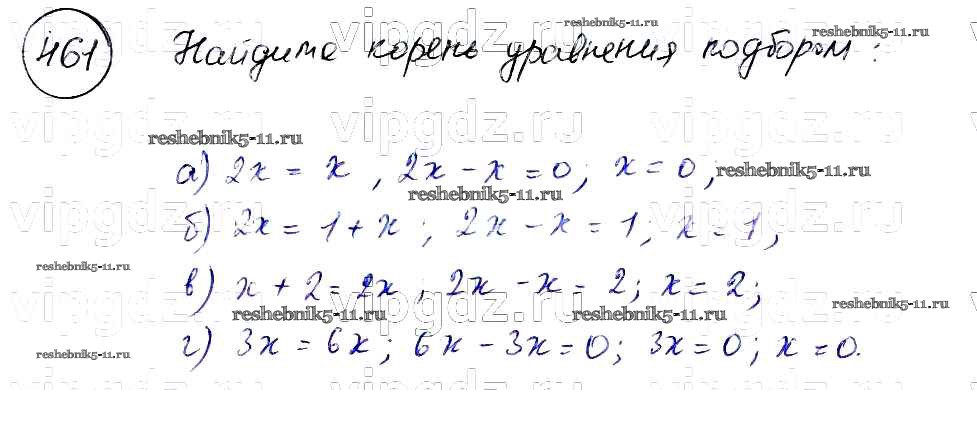 461 Найдите корень уравнения подбором:
а) 2x = x, 2x - x = 0; x = 0;
б) 2x = 1 + x; 2x - x = 1; x = 1;
в) x + 2 = 2x, 2x - x = 2; x = 2;
г) 3x = 6x; 6x - 3x = 0; 3x = 0; x = 0.
vipgdz.ru vipgdz.ru vipgdz.ru
reshebnik5-11.ru
reshebnik5-11.ru
reshebnik5-11.ru
vipgdz.ru vipgdz.ru vipgdz.ru
reshebnik5-11.ru
reshebnik5-11.ru
vipgdz.ru vipgdz.ru vipgdz.ru
reshebnik5-11.ru
vipgdz.ru vipgdz.ru vipgdz.ru
reshebnik5-11.ru
reshebnik5-11.ru
reshebnik5-11.ru
reshebnik5-11.ru